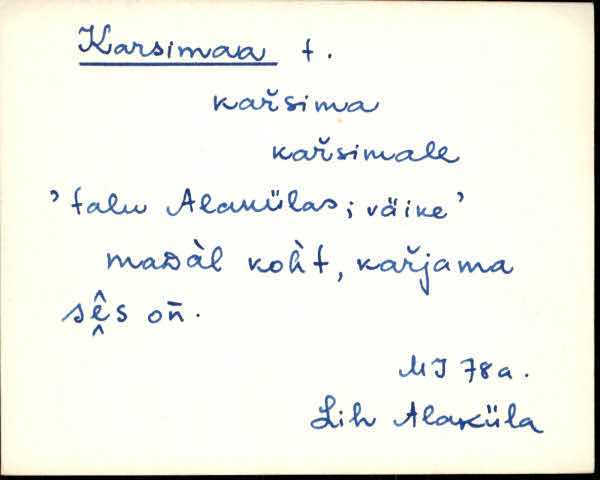 Karsimaa t.
kařsima
kařsimale
’talu Alakülas; väike’
maᴅàl koh̀t, kařjama
sḙ̂s on̄.
MJ 78a.
Lih Alaküla